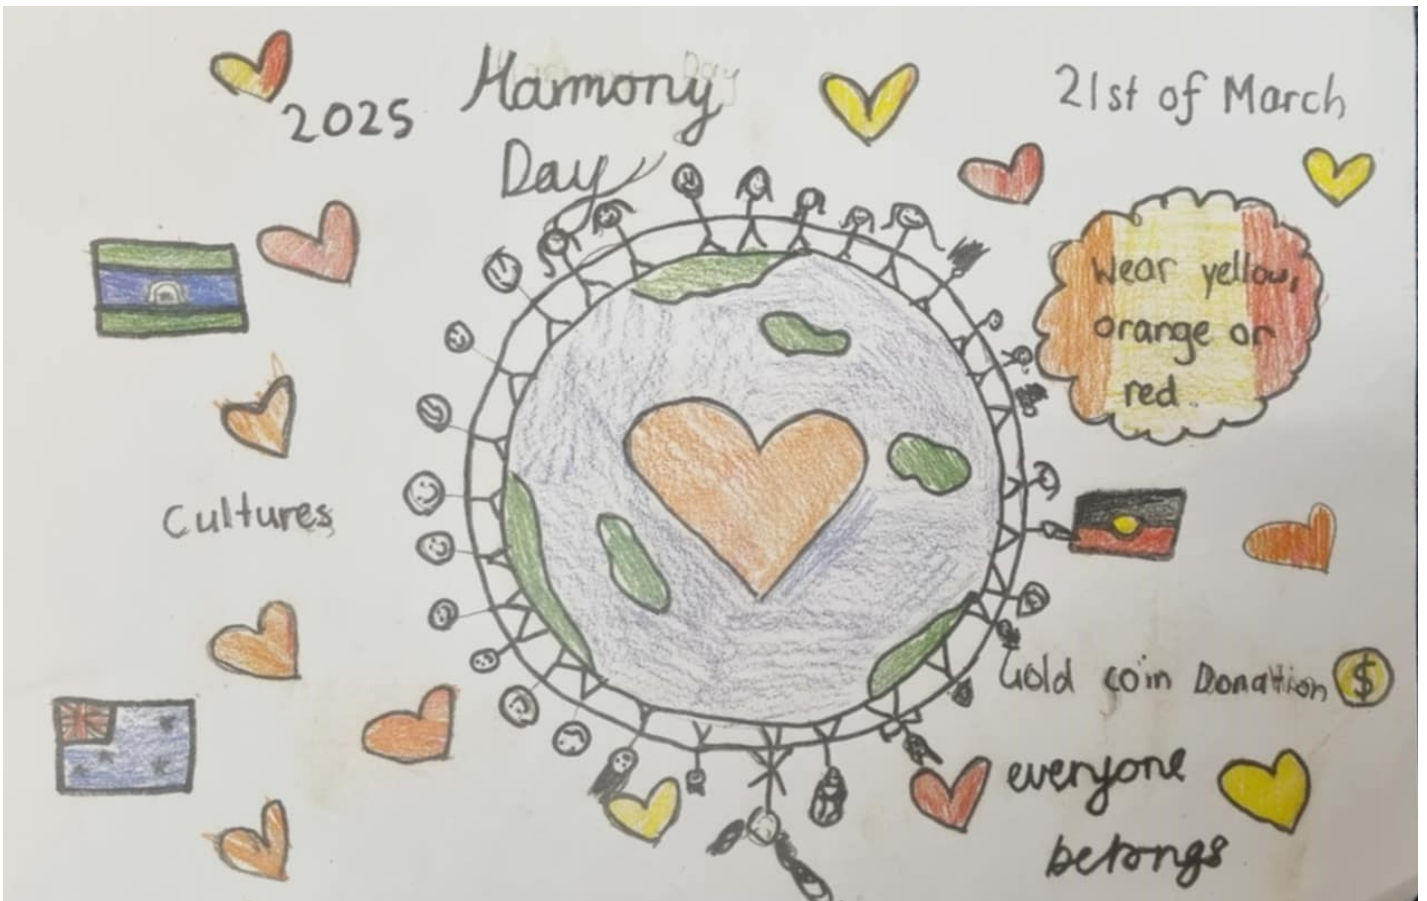 2025
Harmony
Day
21st of March
Wear yellow,
orange or
red.
Cultures
Gold coin Donattion $
everyone
belongs